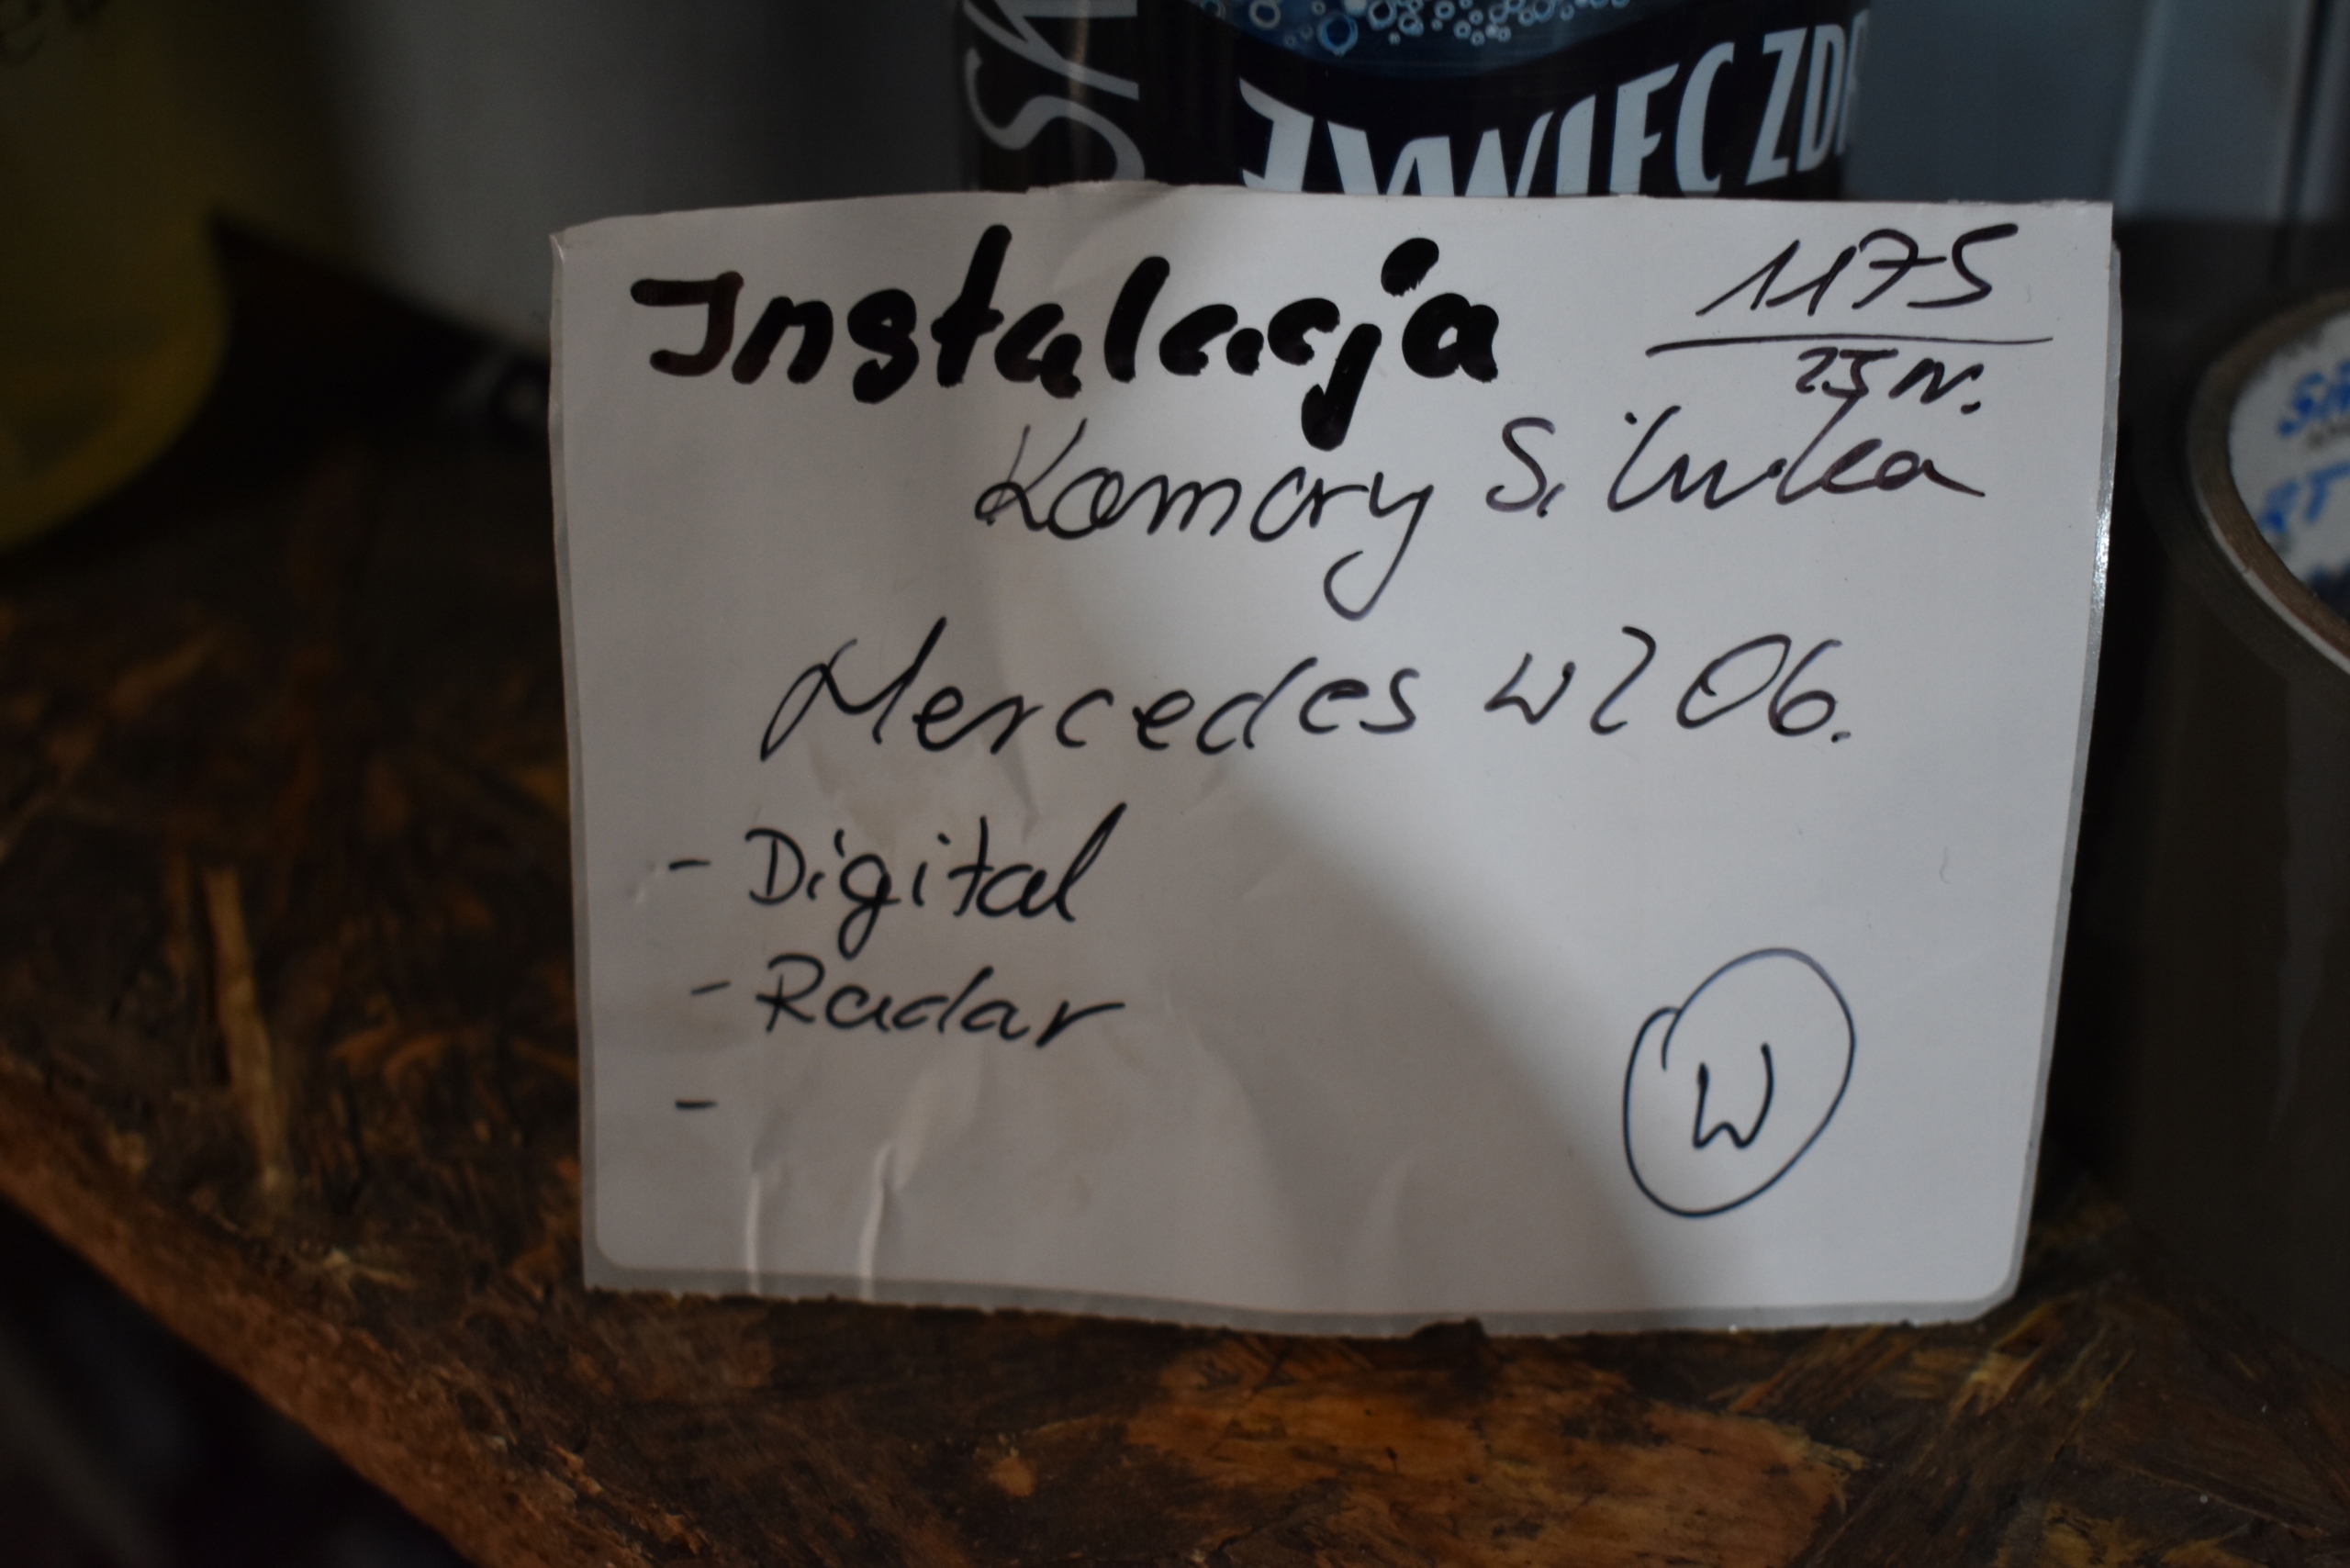 ŻYWIEC ZDR
Instalacja
1175
25 N.
Komory Silnika
Mercedes W206.
- Digital
- Radar
-
W